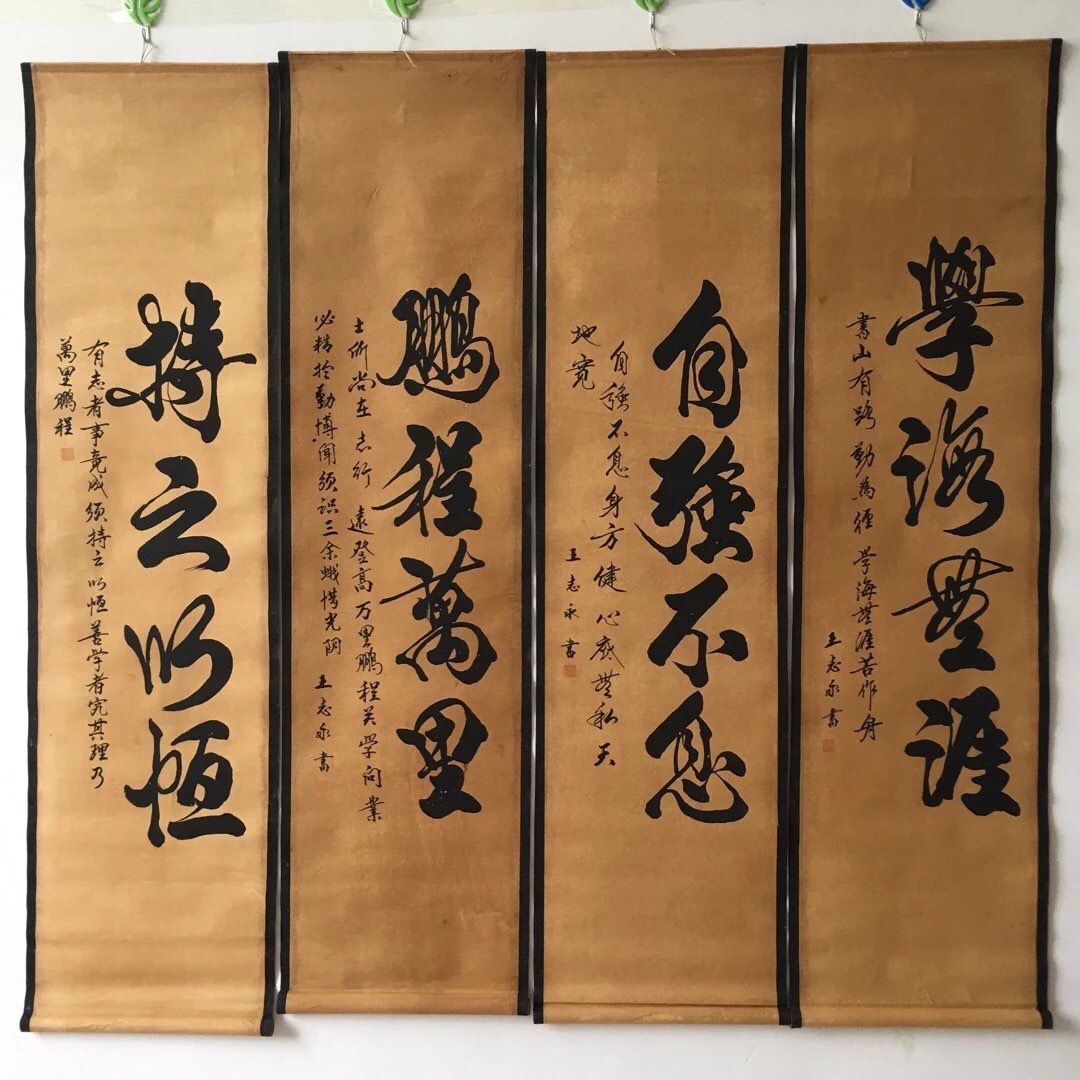 學海無涯
書山有路 勤為徑 学海無涯苦作舟
王志永書
自強不息
自強不息身方健心底無私天
地寬
王志永書
鵬程萬里
士所尚在志行遠登高万里鵬程关学问業
必精於勤博闻须识三余蛾惜光阴 王志永書
持之以恆
有志者事竟成须持之以恆善学者究其理乃
萬里鵬程